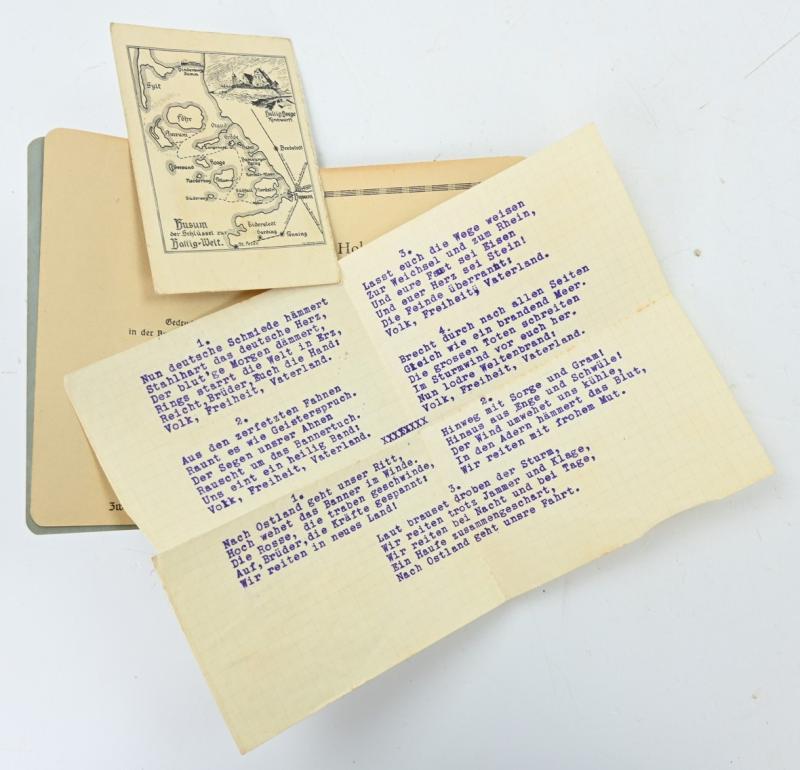 Hindenburg
Damm
Sylt
Föhr
Amrum
Hallig Hooge
Oland
Gröde
Langeness
Bredstedt
Hooge
Nordstrand
Süderoog
Husum
Eiderstedt
Garding
Tönning
St. Peter
Husum
der Schlüssel zur
Hallig-Welt.
Hol
Gedru
in der B
Zu
1.
Nun deutsche Schmiede hämmert
Stahlhart das deutsche Herz,
Der blut'ge Morgen dämmert,
Rings starrt die Welt in Erz,
Reicht, Brüder, Euch die Hand;
Volk, Freiheit, Vaterland.
2.
Aus den zerfetzten Fahnen
Raunt es wie Geisterspruch.
Der Segen unsrer Ahnen
Rauscht um das Bannertuch.
Uns eint ein heilig Band:
Volk, Freiheit, Vaterland.
3.
Lasst euch die Wege weisen
Zur Weichsel und zum Rhein,
Und eure Faust sei Eisen
Und euer Herz sei Stein!
Die Feinde überrannt:
Volk, Freiheit, Vaterland.
4.
Brecht durch nach allen Seiten
Gleich wie ein brandend Meer.
Die grossen Toten schreiten
Im Sturmwind vor euch her.
Nun lodre Weltenbrand:
Volk, Freiheit, Vaterland.
XXXXXXXX
1.
Nach Ostland geht unser Ritt,
Hoch wehet das Banner im Winde.
Die Rosse, die traben geschwinde,
Auf, Brüder, die Kräfte gespannt:
Wir reiten in neues Land!
2.
Hinweg mit Sorge und Gram!
Hinaus aus Enge und Schwüle!
Der Wind umwehet uns kühle,
In den Adern hämmert das Blut,
Wir reiten mit frohem Mut.
3.
Laut brauset droben der Sturm,
Wir reiten trotz Jammer und Klage,
Wir reiten bei Nacht und bei Tage,
Ein Haufe zusammengeschart:
Nach Ostland geht unsre Fahrt.